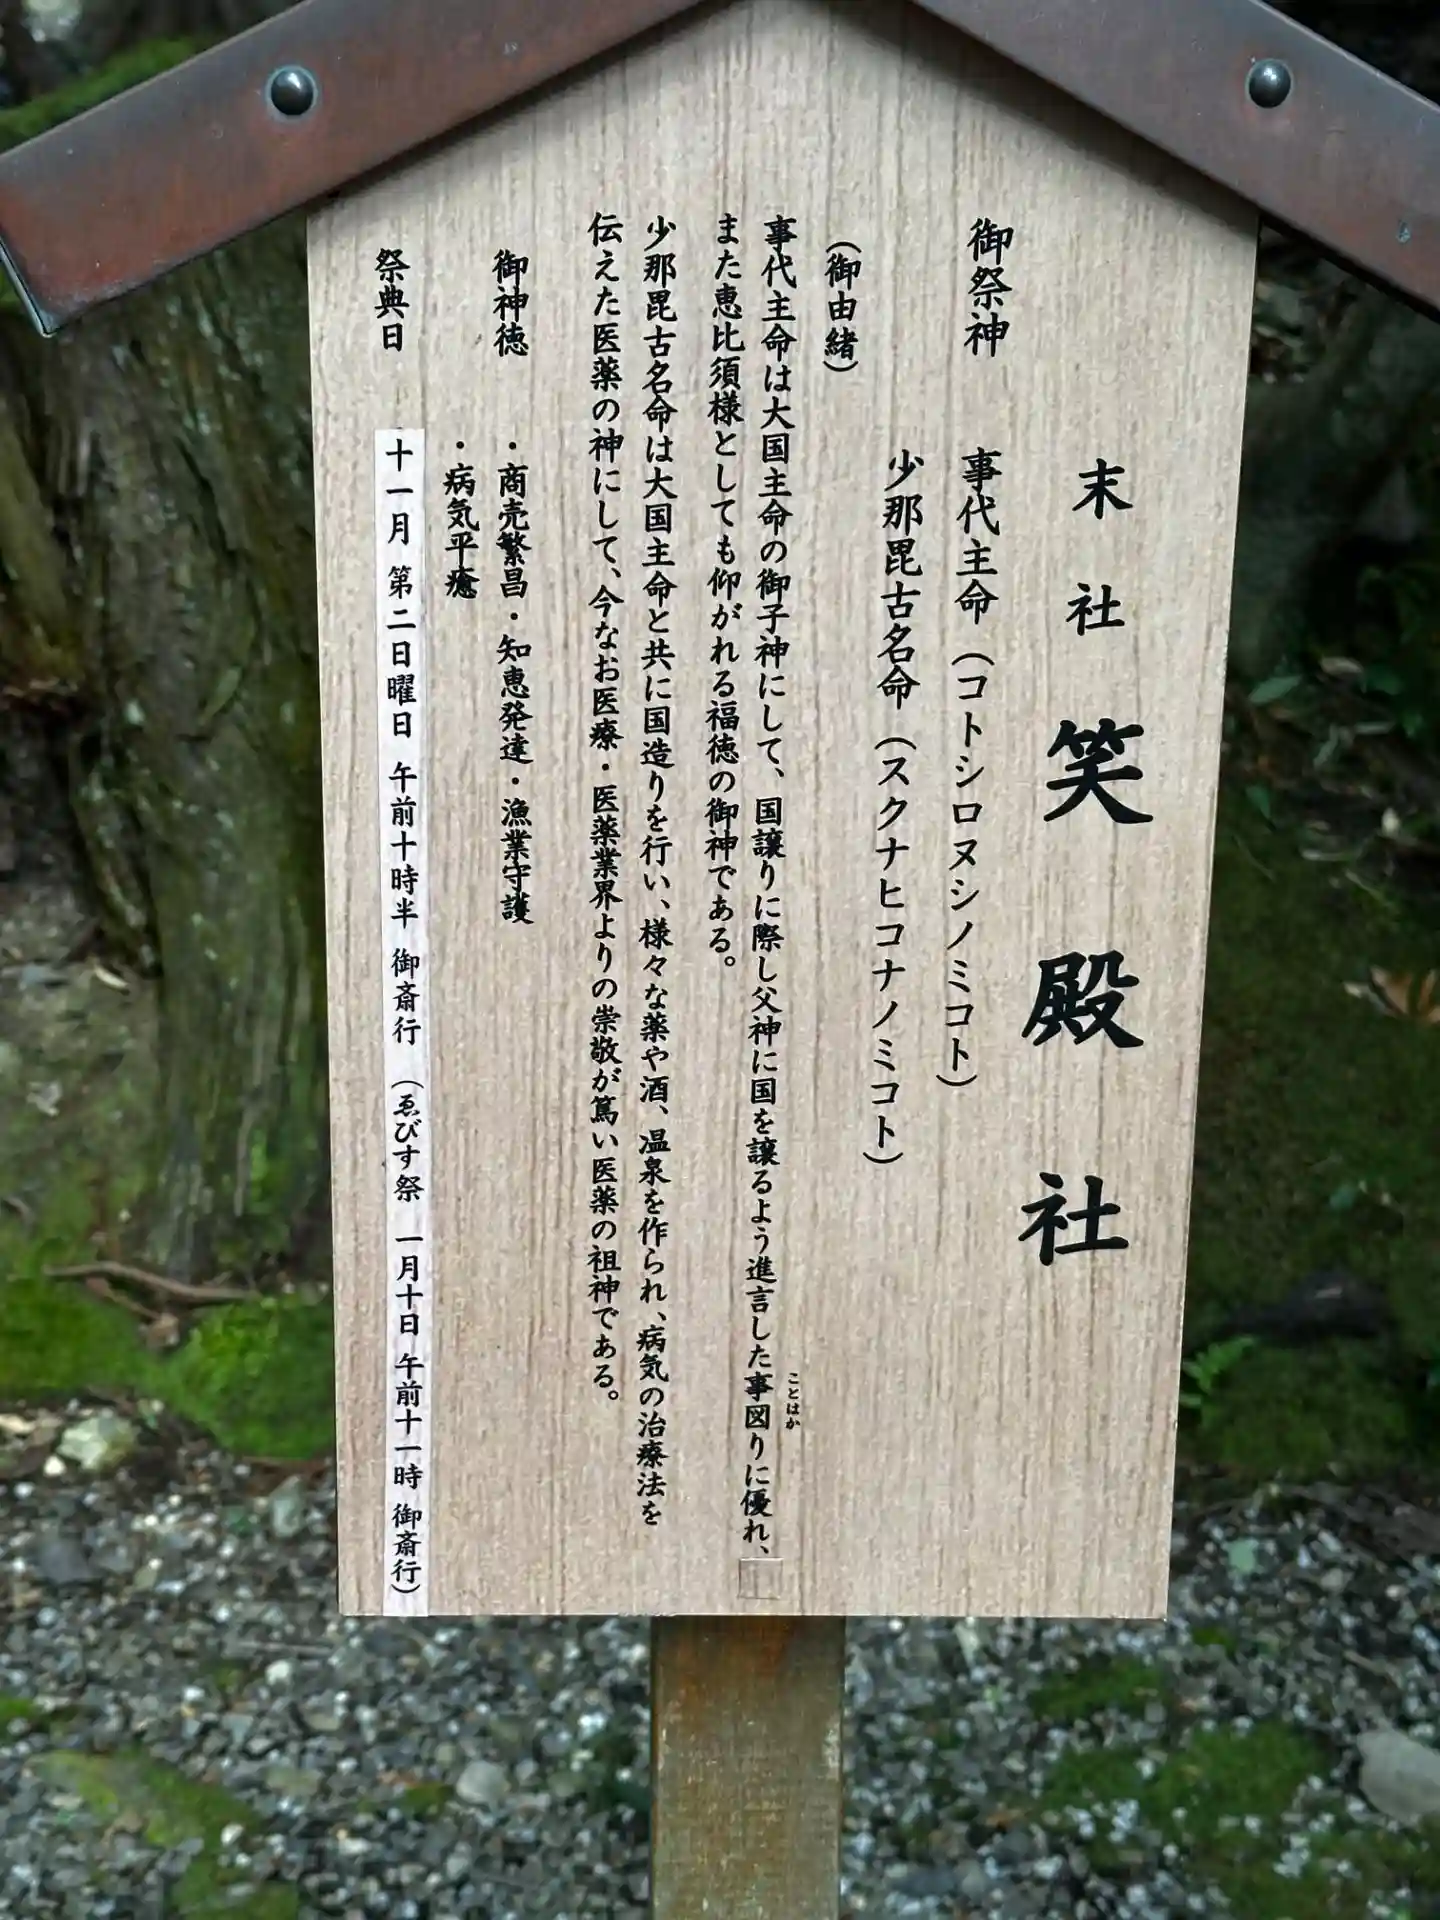 末社 笑殿社
御祭神 事代主命（コトシロヌシノミコト）
少那毘古名命（スクナヒコナノミコト）
（御由緒）
事代主命は大国主命の御子神にして、国譲りに際し父神に国を譲るよう進言した事図りに優れ、
ことはか
また恵比須様としても仰がれる福徳の御神である。
少那毘古名命は大国主命と共に国造りを行い、様々な薬や酒、温泉を作られ、病気の治療法を
伝えた医薬の神にして、今なお医療・医薬業界よりの崇敬が篤い医薬の祖神である。
御神徳 ・商売繁昌・知恵発達・漁業守護
・病気平癒
祭典日 十一月 第二日曜日 午前十時半 御斎行 （ゑびす祭 一月十日 午前十一時 御斎行）